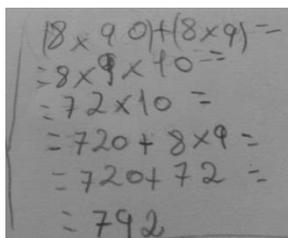 (8×90)+(8×9)=
=8×9×10=
=72×10=
=720+8×9=
=720+72=
=792